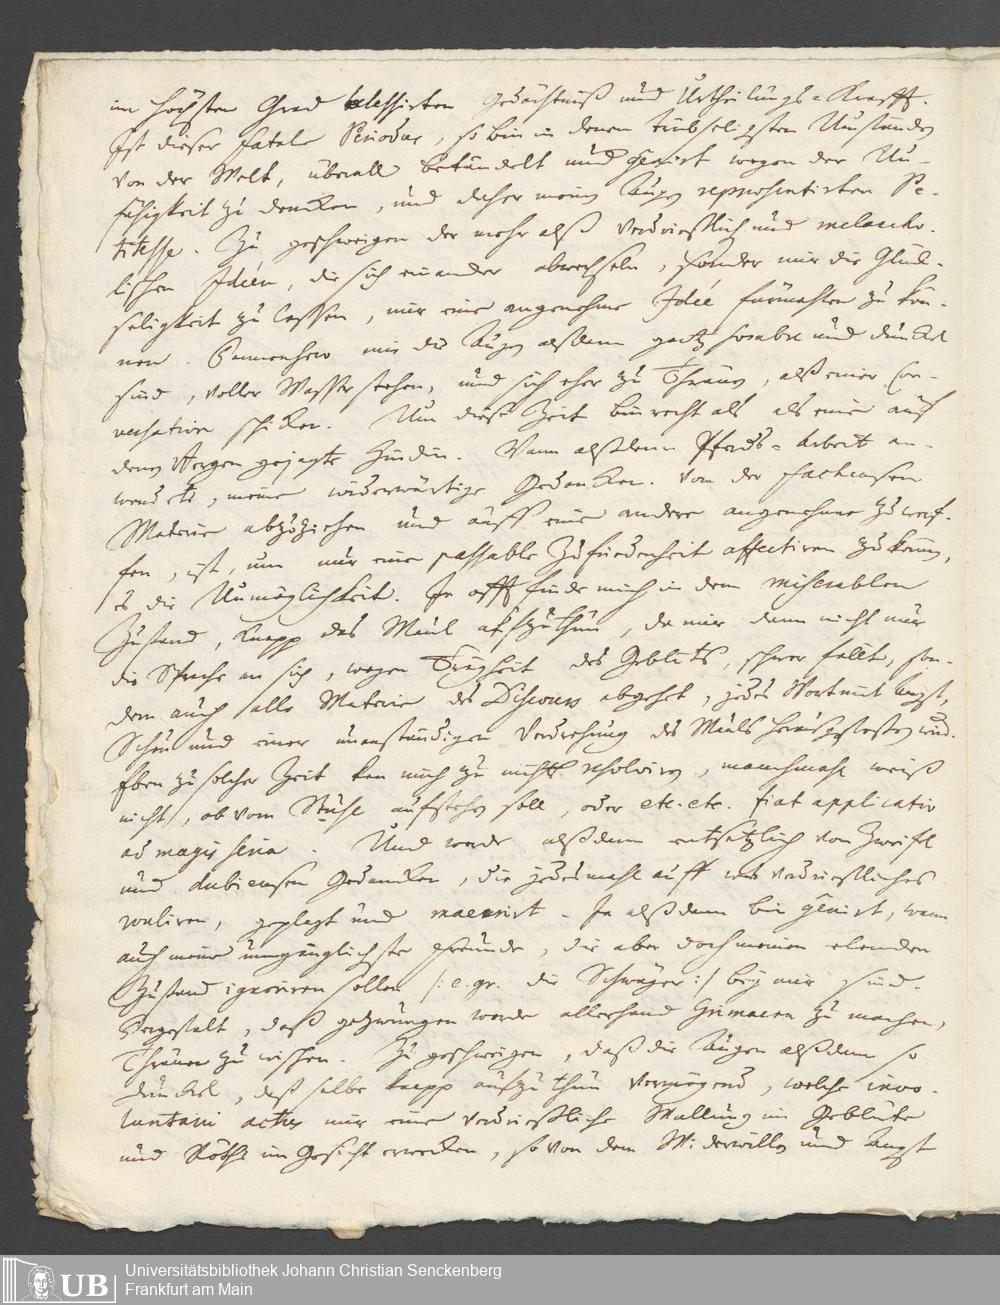 im höchsten Grad blessirten Gedächtniß und Urtheilungs=Krafft.
Ist dieser fatale Periodus, so bin in denen trübseligsten Umständen
von der Welt, überall betändelt und genirt wegen der Un-
fähigkeit zu dencken, und daher meinen Augen repraesentirten Pe-
titesse. Zu geschweigen der mehr alß verdrießlich und melancho-
lischen Idéen, die sich einander abwechseln, sonder mir die Glück-
seligkeit zu lassen, mir eine angenehme Idée fürmahlen zu kön-
nen. Immerhero mir die Augen alßdann gantz sombre und dunckel
sind, voller Wasser stehen, und sich eher zu Thränen, alß einer Con-
versation schicken. Um diese Zeit bin recht als als eine auf
denen Bergen gejagte Hindin. Wann alßdann Pferds=Arbeit an-
wendete, meine widerwärtige Gedancken von der
Materie abzuziehen und auff eine andere angenehme zu werf-
fen, ist, um nur eine passable Zufriedenheit affectiren zu können,
es die Unmöglichkeit. Ja offt finde mich in dem miserablen
Zustand, knapp das Maul aufzuthun, da mir dann nicht nur
die Sprache an sich, wegen Trägheit des Geblüts, schwer fallt, son-
dern auch alle Materie des Discours abgehet, jedes Wort mit Angst,
Scheu und einer unanständigen Verdrehung des Mauls herausgestoßen wird.
Eben zu solcher Zeit kan mich zu nichts resolviren, manchmahl weiß
nicht, ob vom Stuhl aufstehen soll, oder etc. etc. fiat applicatio
ad magis seria. Und werde alßdann entsetzlich von Zweifel
und dubieusen Gedancken, die jedesmahl auff was verdrießliches
rouliren, geplagt und . Ja alßdann bin genirt, wann
auch meine umgänglichste Freunde, die aber doch meinen elenden
Zustand ignoriren sollen /: e. gr. die Schwäger :/ bey mir sind.
Dergestalt, daß gezwungen werde allerhand Grimacen zu machen,
Thränen zu wischen. Zu geschweigen, daß die Augen alßdann so
dunckel, daß selbe knapp aufzuthun vermögend, welche invo-
luntarii actus mir eine verdrießliche Wallung im Geblüte
und Röthe im Gesicht erwecken, so von dem Widerwillen und Angst
UB
Universitätsbibliothek Johann Christian Senckenberg
Frankfurt am Main